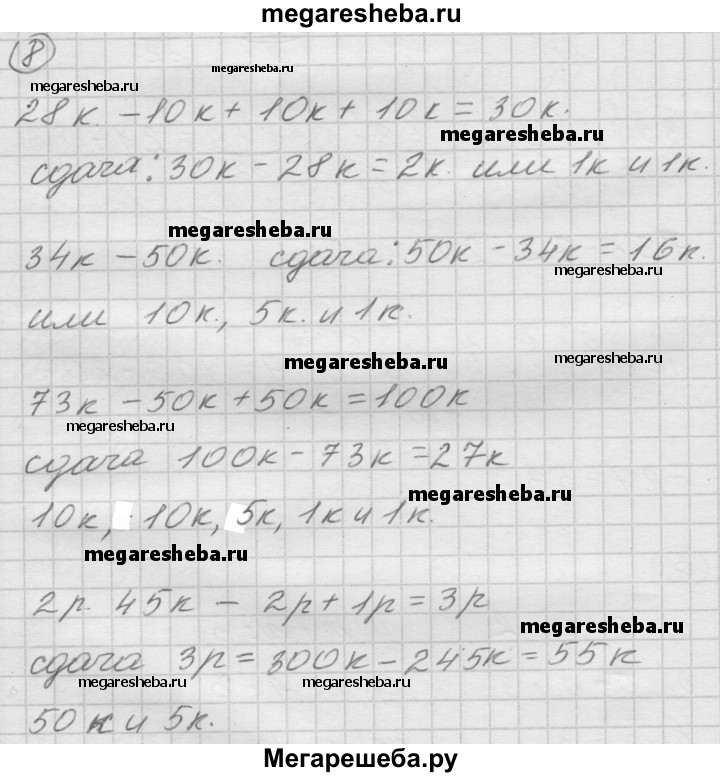 megaresheba.ru
8
megaresheba.ru
megaresheba.ru
28к. – 10к + 10к + 10к = 30к.
megaresheba.ru
сдача: 30к – 28к = 2к. или 1к и 1к.
megaresheba.ru
34к – 50к. сдача: 50к – 34к = 16к.
megaresheba.ru
или 10к., 5к. и 1к.
megaresheba.ru
megaresheba.ru
73к – 50к + 50к = 100к
megaresheba.ru
сдача 100к – 73к = 27к
megaresheba.ru
10к, 10к, 5к, 1к и 1к.
megaresheba.ru
2р. 45к – 2р + 1р = 3р
megaresheba.ru
сдача 3р = 300к – 245к = 55к
megaresheba.ru
megaresheba.ru
50к и 5к.
Мегарешеба.ру